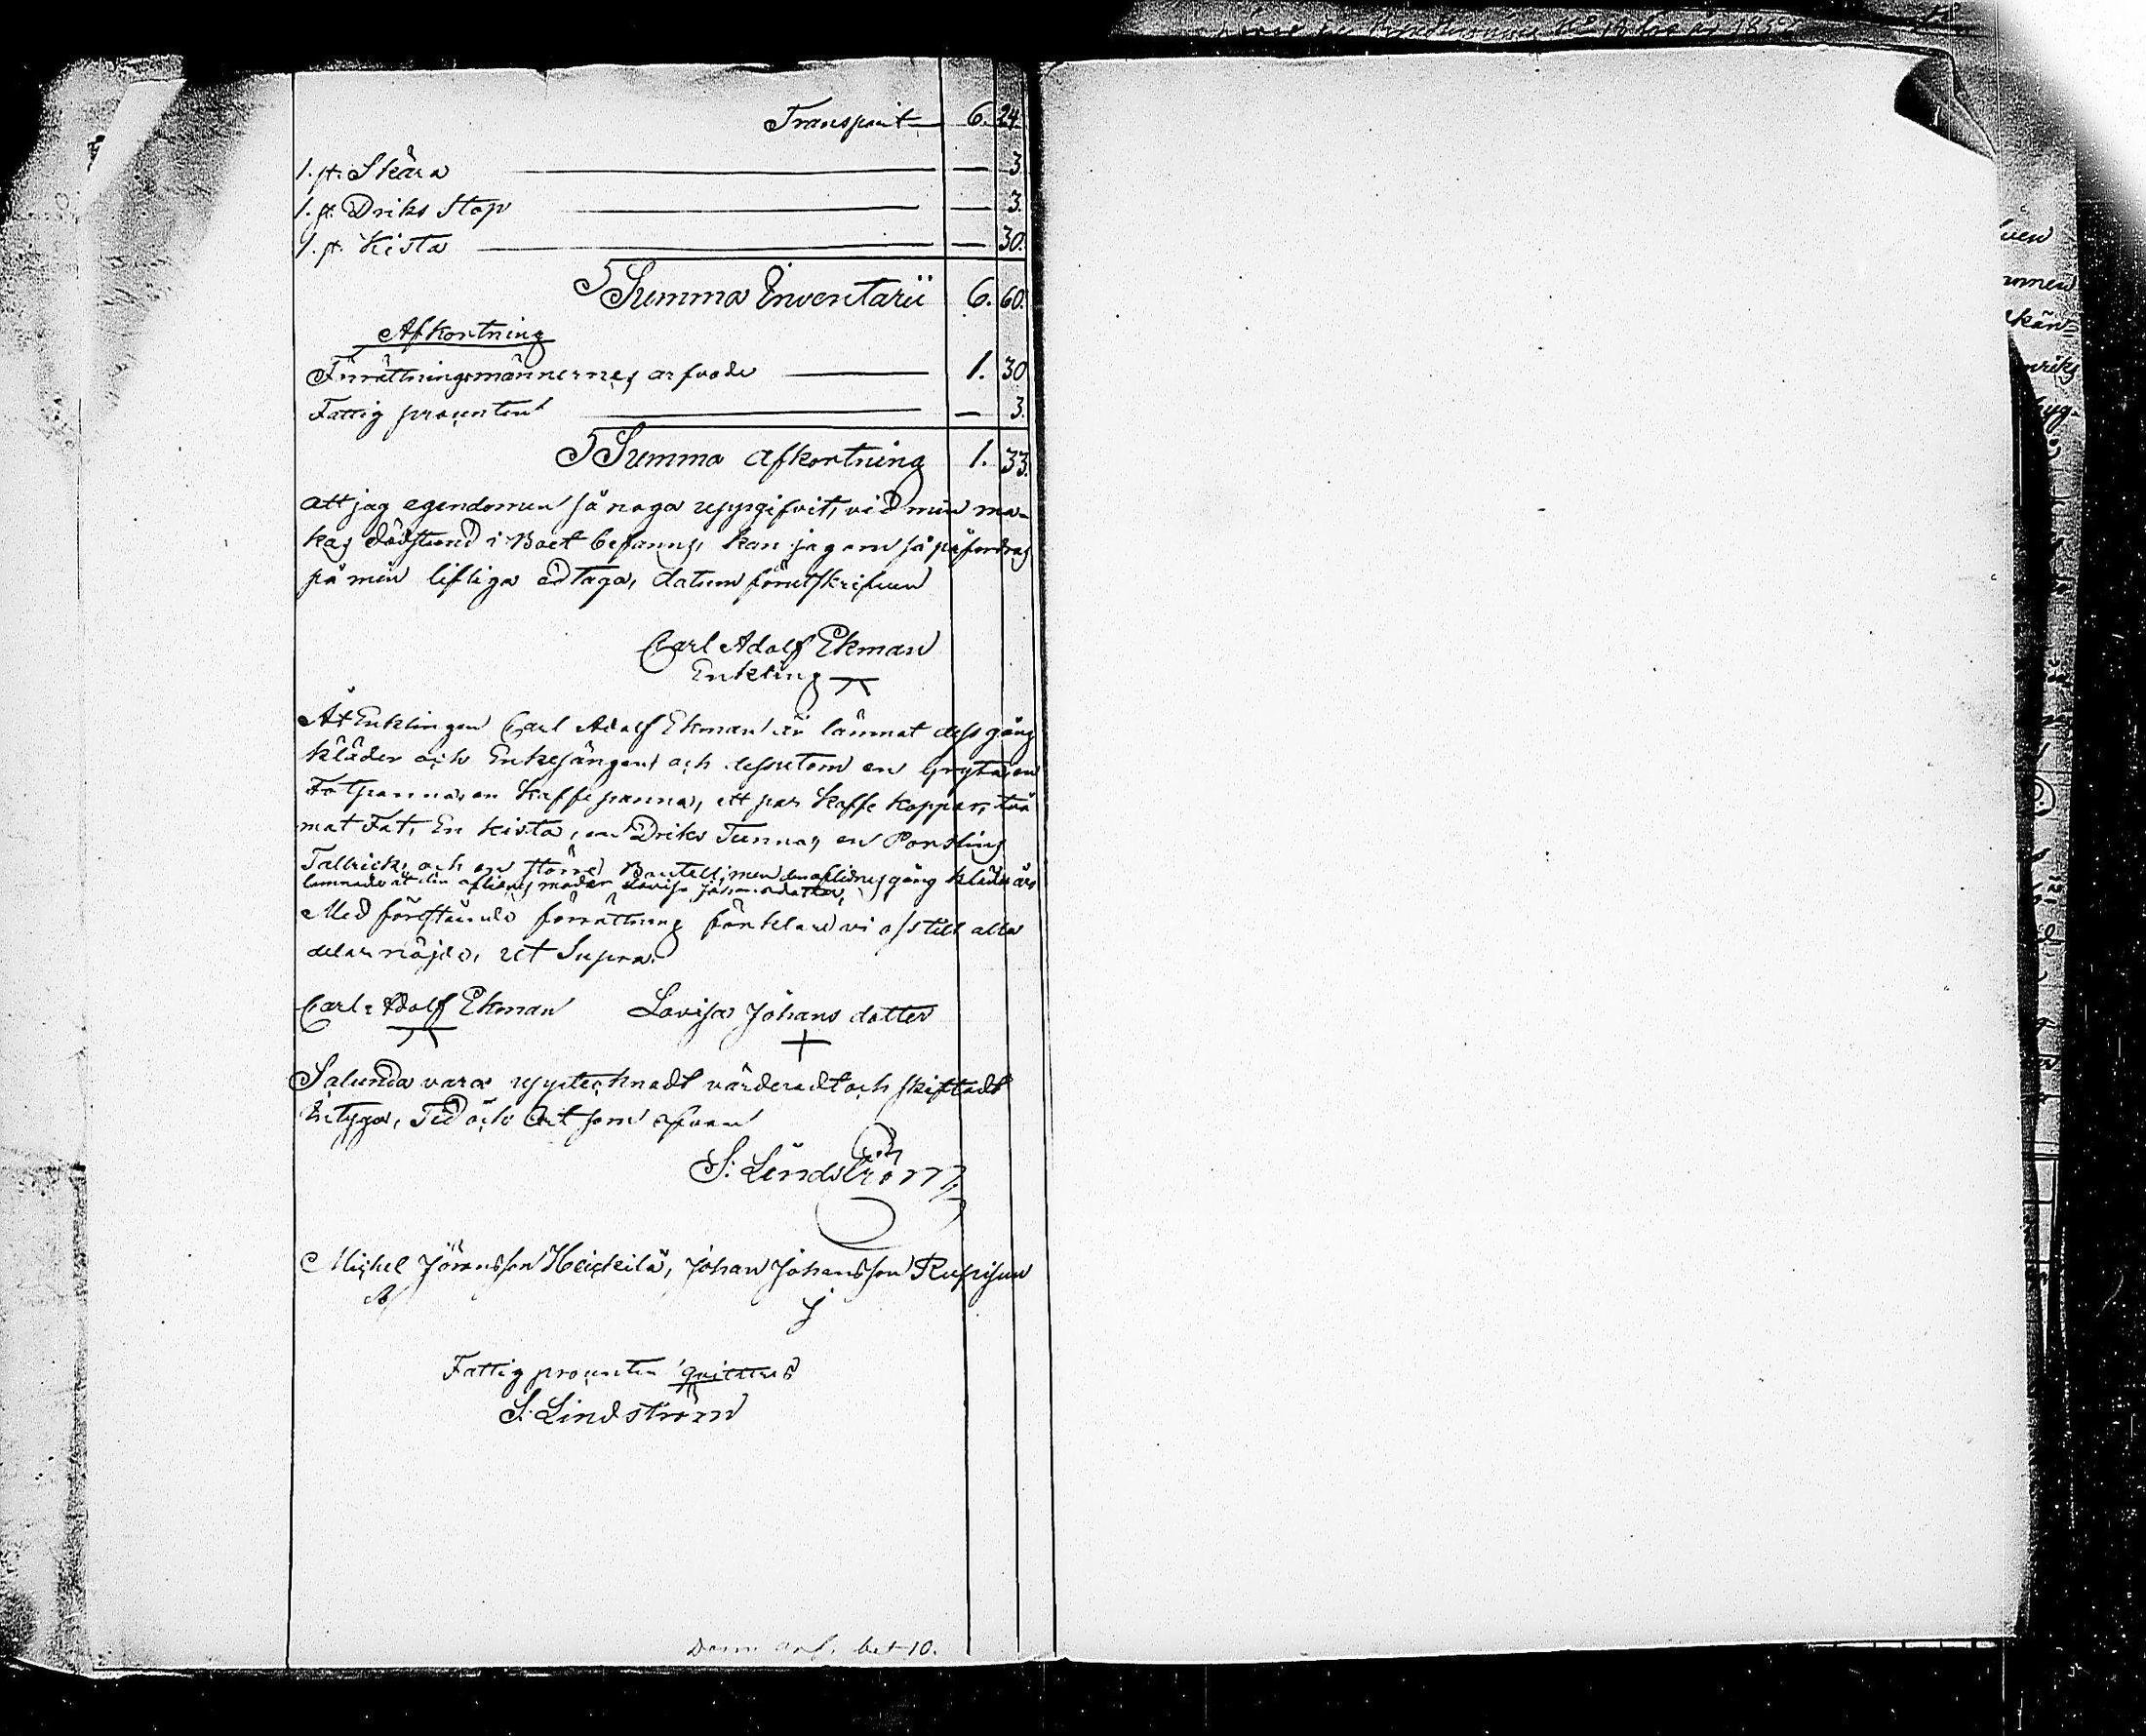 Transport 6. 24.
1. st. Skära — 3.
1. st. Driks Stop — 3.
1. st. Kista — 30.
Summa Inventarii 6. 60.
Afkortning
Förrättningsmännernes arfvode 1. 30
Fattig procenten — 3.
Summa afkortning 1. 33.
att jag egendomen så noga uppgifvit, vid min ma-
kas dödstund i Boet befanns, kan jag om så påfordras
på min lifliga ed taga, datum förutskrifven
Carl Adolf Ekman
Enkling
Åt Enklingen Carl Adolf Ekman är lämnat dess gång
kläder och Enkesängen och dessutom en gryta, en
Fotpanna, en Kaffepanna, ett par Kaffe koppar, två
mat Fat, En kista, en Driks Tunna, en Porslins
Tallrick, och en större Boutell; men den aflidnes gång kläder äro
lemnade åt den aflidnes moder Lovisa Johansdotter,
Med förestående förrättning förklara vi oss till alla
delar nöjda, ut Supra.
Carl Adolf Ekman Lovisa Johans dotter
Sålunda vara upptecknadt värderadt och skiftadt
betyga, Tid och Ort som ofvan
S: Lindström
Michel Jöransson Heickilä, Johan Johansson
Fattig procenten quitteras
S: Lindström
bet 10.